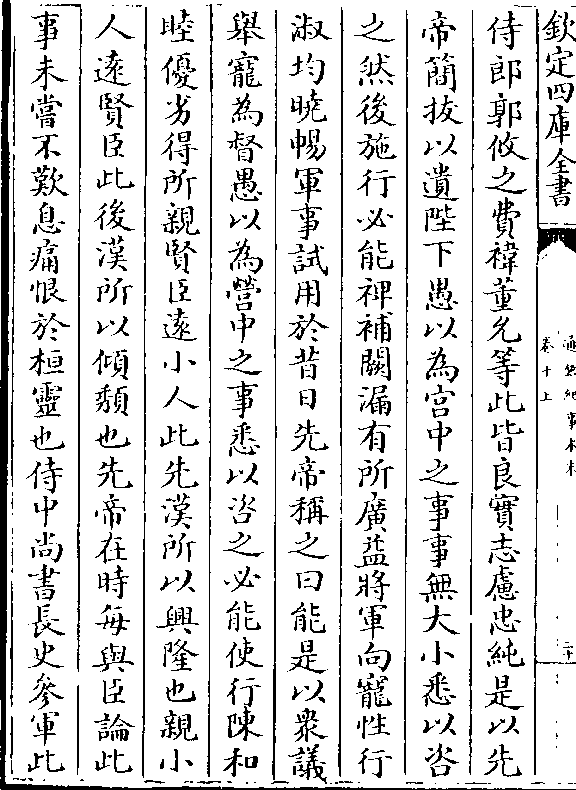 欽定四庫全書
通鑑紀事本末
卷十上
侍郎郭攸之費禕董允等此皆良實志慮忠純是以先
帝簡拔以遺陛下愚以為宫中之事事無大小悉以咨
之然後施行必能裨補闕漏有所廣益將軍向寵性行
淑均曉暢軍事試用於昔日先帝稱之曰能是以衆議
舉寵為督愚以為營中之事悉以咨之必能使行陳和
睦優劣得所親賢臣遠小人此先漢所以興隆也親小
人遠賢臣此後漢所以傾頽也先帝在時每與臣論此
事未嘗不歎息痛恨於桓靈也侍中尚書長史參軍此